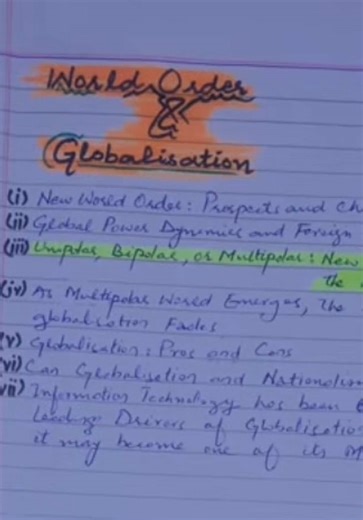 World Order
&
Globalisation
(i) New World Order: Prospects and Ch
(ii) Global Power Dynamics and Foreign
(iii) Unipolar, Bipolar, or Multipolar: New
the
(iv) As Multipolar World Emerges, the
globalisation Fades
(v) Globalisation: Pros and Cons
(vi) Can Globalisation and Nationalis
(vii) Information Technology has been
Leading Drivers of Globalisatio
it may become one of its m